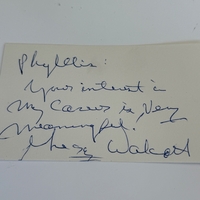 Phyllis:
Your interest in
my career is very
meaningful.
Walcott